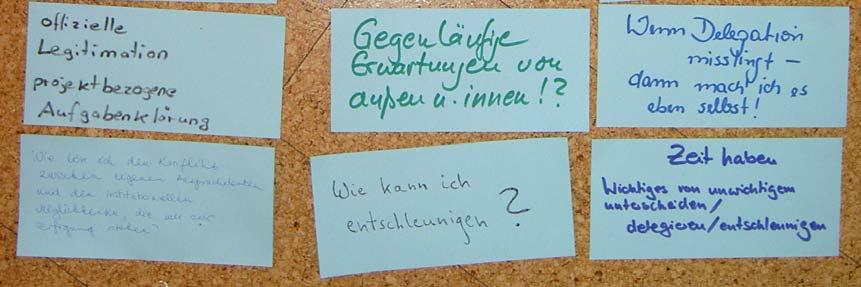 offizielle
Legitimation
projektbezogene
Aufgabenklärung
Gegenläufige
Erwartungen von
außen u. innen!?
Wenn Delegation
misslingt –
dann mach' ich es
eben selbst!
Wie lös ich den Konflikt
zwischen eigenen
und den institutionellen
die mir zur
Verfügung stehen?
Wie kann ich
entschleunigen ?
Zeit haben
Wichtiges von unwichtigem
unterscheiden/
delegieren/entschleunigen